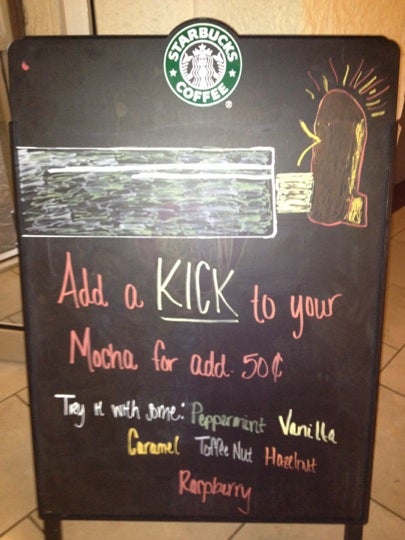 STARBUCKS
COFFEE
®
Add a KICK to your
Mocha for add. 50¢
Try it with some: Peppermint Vanilla
Caramel Toffee Nut Hazelnut
Raspberry